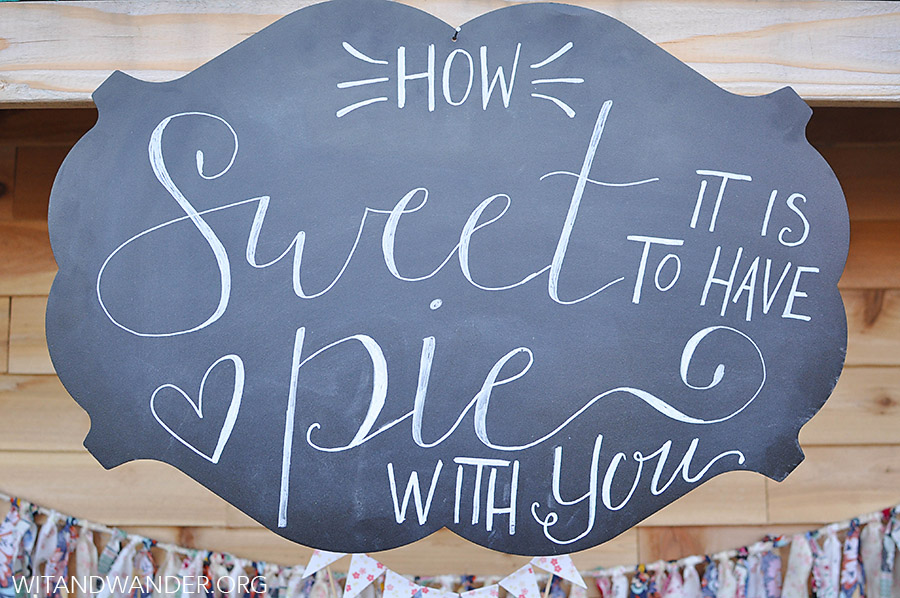 HOW
Sweet IT IS
TO HAVE
pie
WITH you
WITANDWANDER.ORG